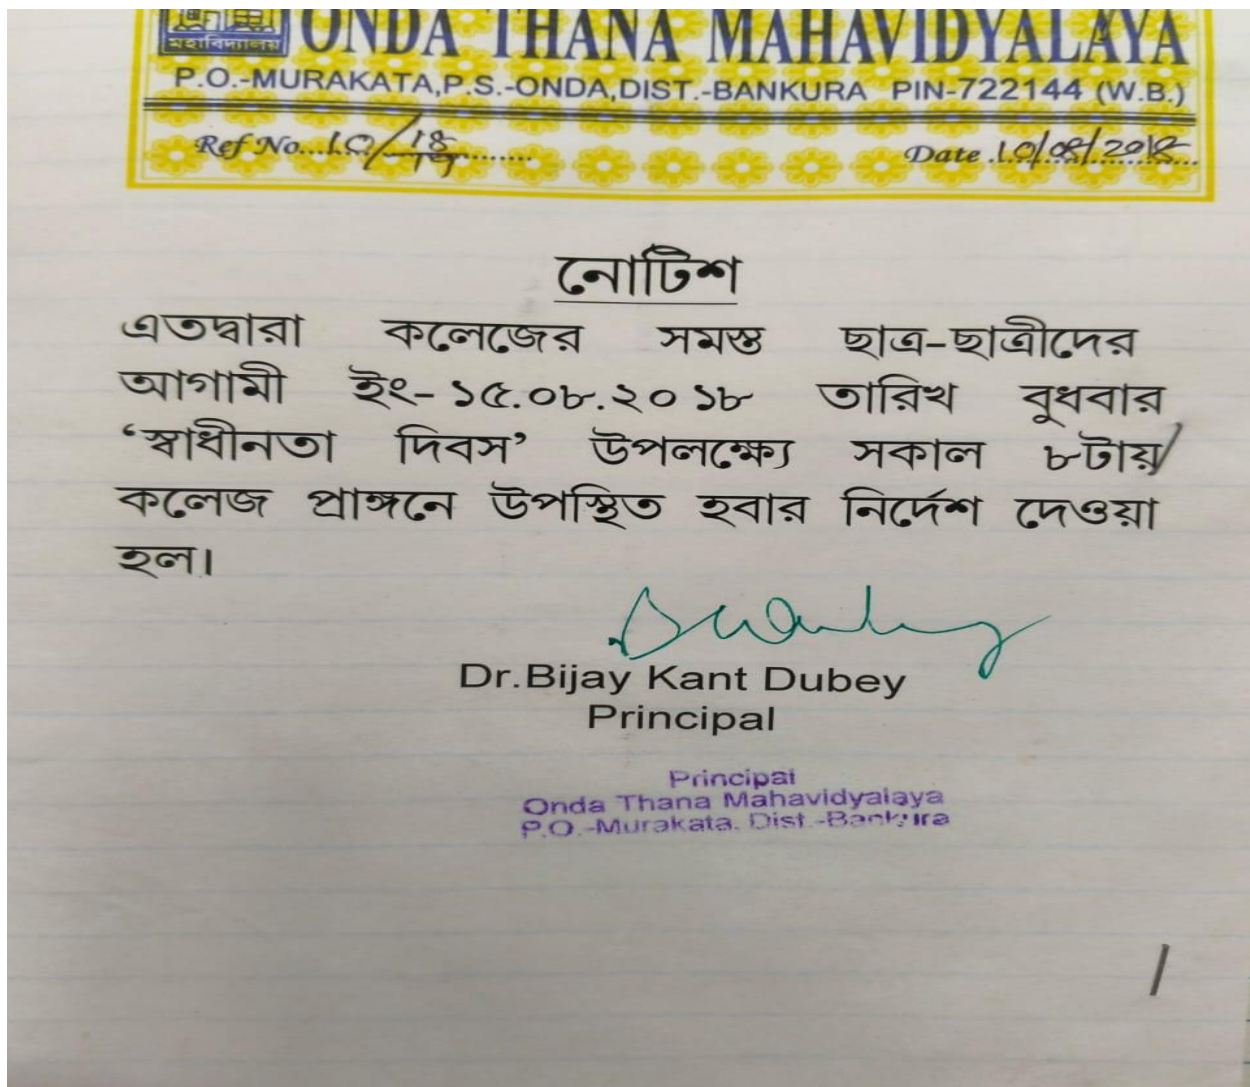 মহাবিদ্যালয়
ONDA THANA MAHAVIDYALAYA
P.O.-MURAKATA,P.S.-ONDA,DIST.-BANKURA PIN-722144 (W.B.)
Ref No...10/18/19.......... Date .10/08/2018...
নোটিশ
এতদ্বারা কলেজের সমস্ত ছাত্র-ছাত্রীদের
আগামী ইং- ১৫.০৮.২০১৮ তারিখ বুধবার
‘স্বাধীনতা দিবস’ উপলক্ষ্যে সকাল ৮টায়
কলেজ প্রাঙ্গনে উপস্থিত হবার নির্দেশ দেওয়া
হল।
Dr.Bijay Kant Dubey
Principal
Principal
Onda Thana Mahavidyalaya
P.O.-Murakata, Dist.-Bankura